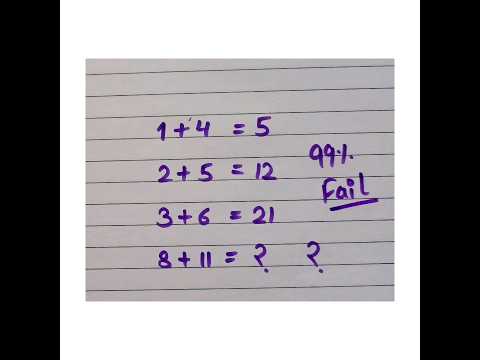 1+4 = 5
2+5 = 12
3+6 = 21
8+11 = ? ?
99%
Fail